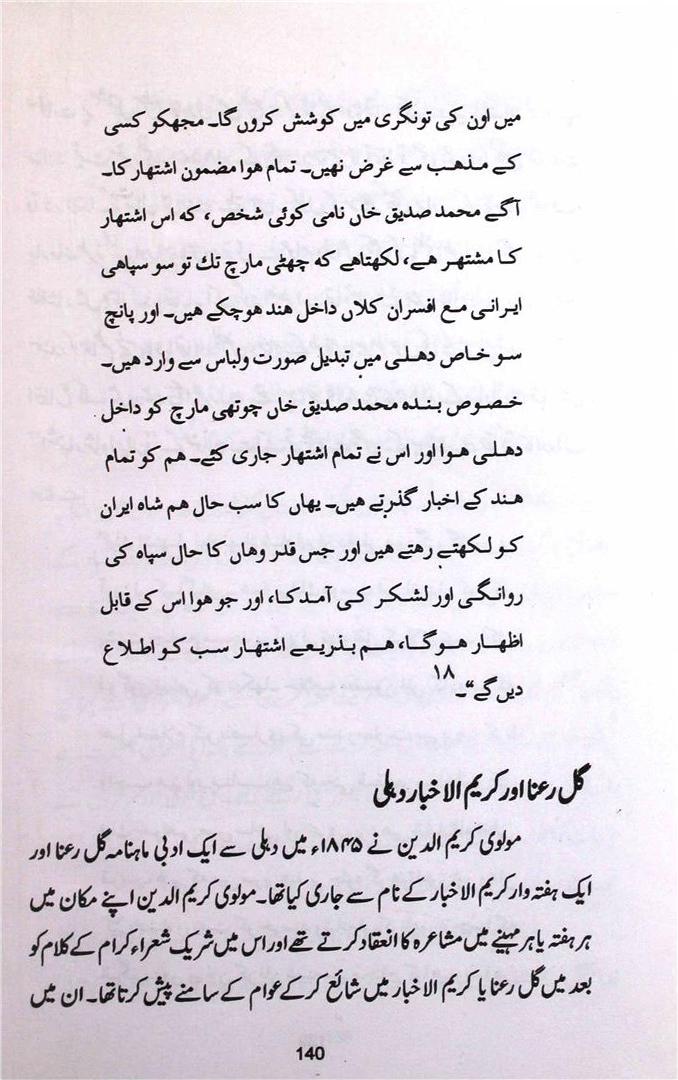 میں اون کی تونگری میں کوشش کروں گا۔ مجھکو کسی
کے مذہب سے غرض نہیں۔ تمام ہوا مضمون اشتہار کا۔
آگے محمد صدیق خاں نامی کوئی شخص، کہ اس اشتہار
کا مشتہر ہے، لکھتاہے کہ چھٹی مارچ تك تو سو سپاہی
ایرانی مع افسران کلاں داخل ہند ہوچکے ہیں۔ اور پانچ
سو خاص دہلی میں تبدیل صورت ولباس سے وارد ہیں۔
خصوص بندہ محمد صدیق خاں چوتھی مارچ کو داخل
دہلی ہوا اور اس نے تمام اشتہار جاری کئے۔ ہم کو تمام
ہند کے اخبار گذرتے ہیں۔ یہاں کا سب حال ہم شاہ ایران
کو لکھتے رہتے ہیں اور جس قدر وہاں کا حال سپاہ کی
روانگی اور لشکر کی آمدکا، اور جو ہوا اس کے قابل
اظہار ہوگا، ہم بذریعے اشتہار سب کو اطلاع
دیں گے“۔۱۸
گل رعنا اور کریم الاخبار دہلی
مولوی کریم الدین نے ۱۸۴۵ء میں دہلی سے ایک ادبی ماہنامہ گل رعنا اور
ایک ہفتہ وار کریم الاخبار کے نام سے جاری کیاتھا۔ مولوی کریم الدین اپنے مکان میں
ہر ہفتہ یا ہر مہینے میں مشاعرہ کا انعقاد کرتے تھے اور اس میں شریک شعراء کرام کے کلام کو
بعد میں گل رعنا یا کریم الاخبار میں شائع کر کے عوام کے سامنے پیش کرتا تھا۔ ان میں
140